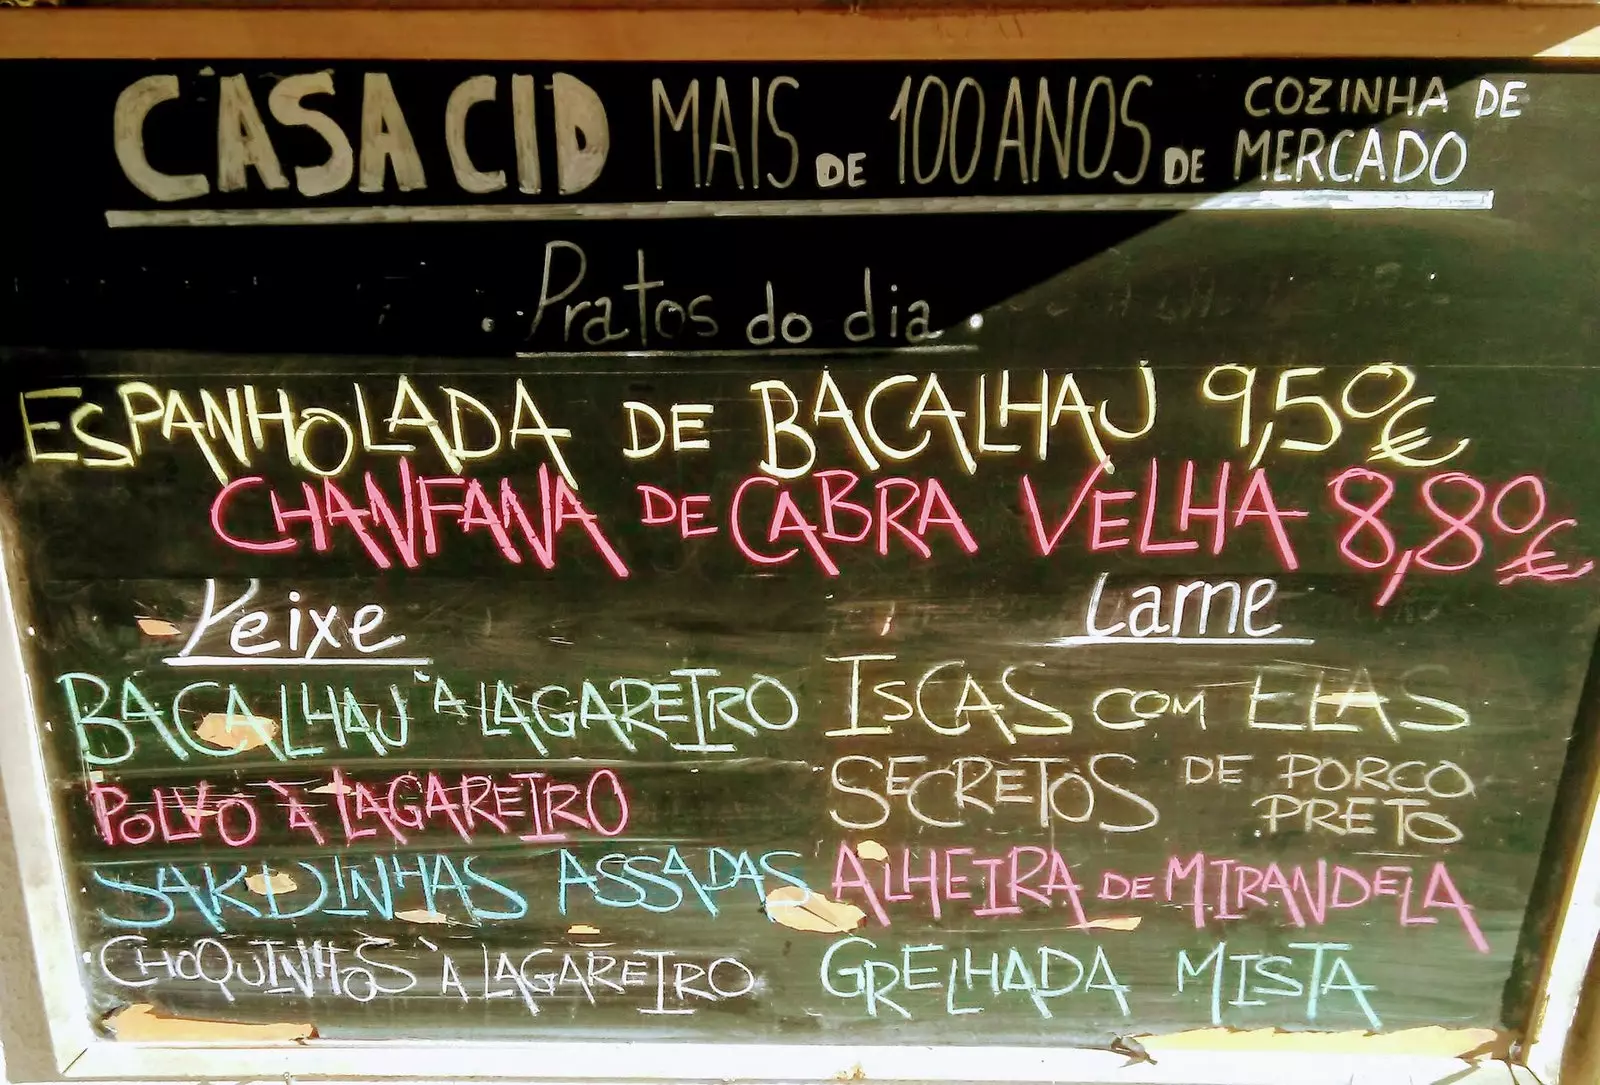 CASA CID MAIS DE 100 ANOS DE COZINHA DE MERCADO
Pratos do dia
ESPANHOLADA DE BACALHAU 9,50€
CHANFANA DE CABRA VELHA 8,80€
Peixe
BACALHAU À LAGAREIRO
POLVO À LAGAREIRO
SARDINHAS ASSADAS
CHOQUINHOS À LAGAREIRO
Carne
ISCAS COM ELAS
SECRETOS DE PORCO PRETO
ALHEIRA DE MIRANDELA
GRELHADA MISTA